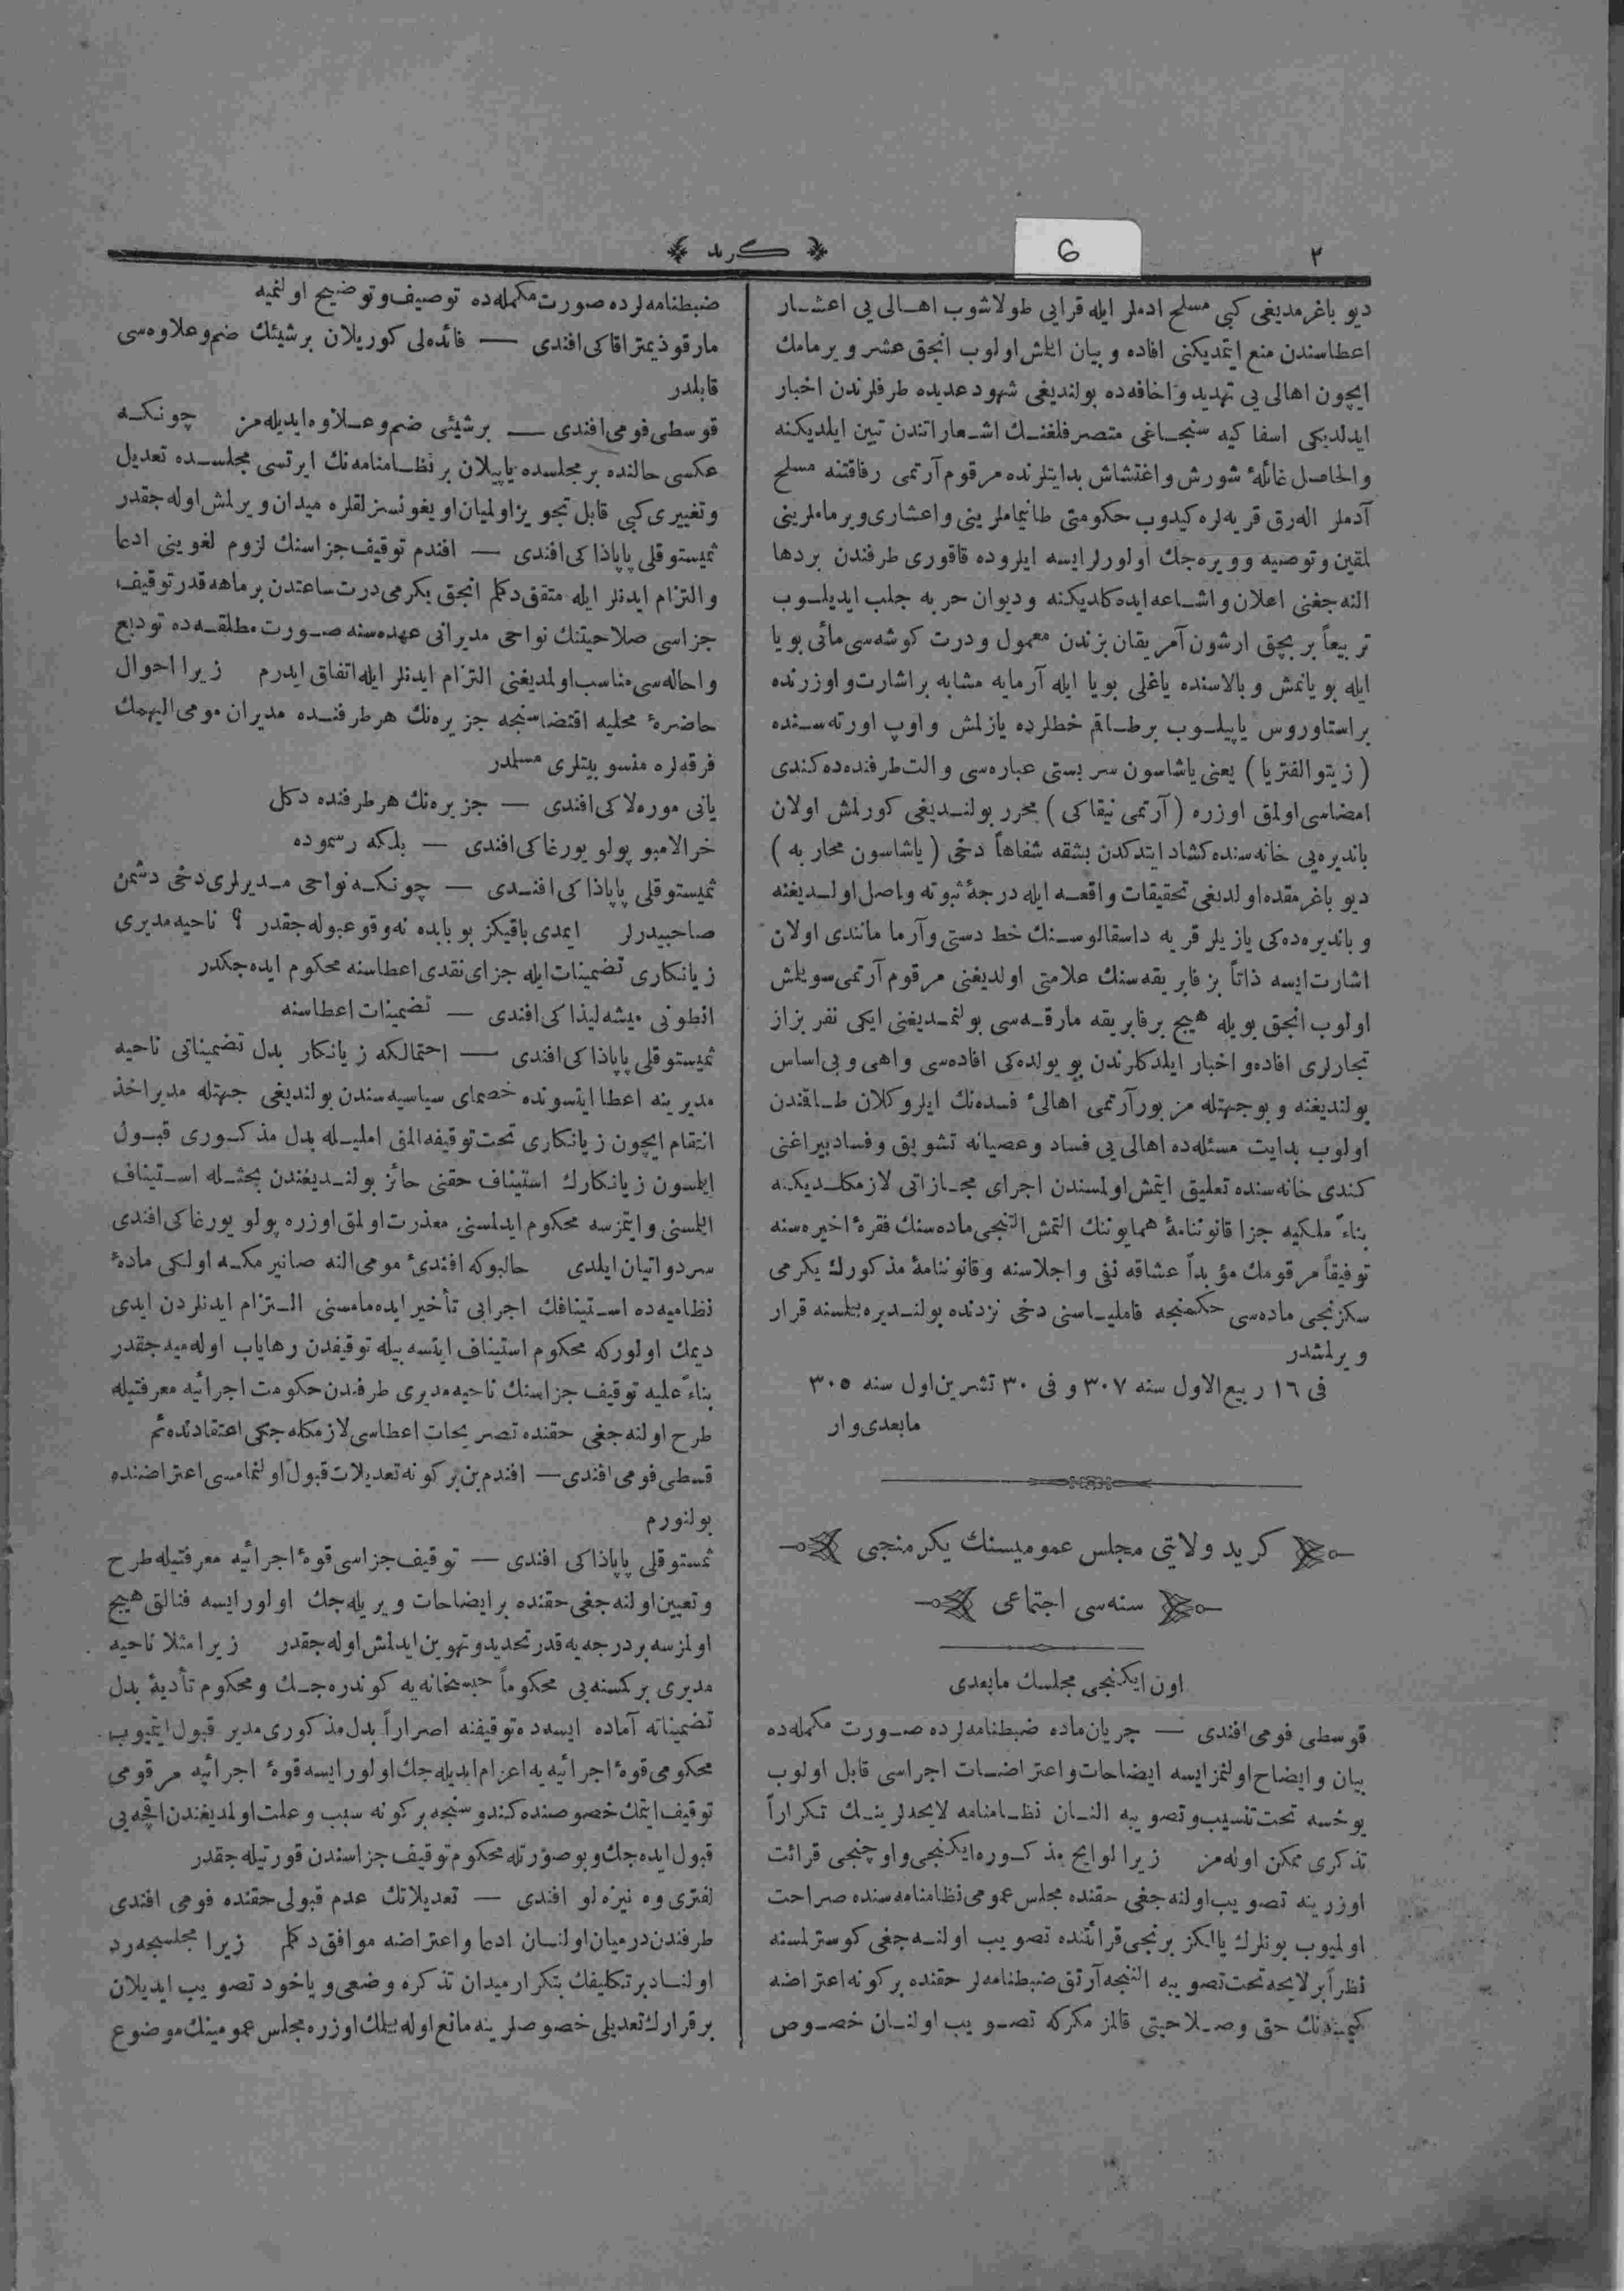 ٢
6
﴿ كريد ﴾
ديو باغرمديغى كبى مسلح ادملر ايله قرايى طولاشوب اهالى يى اعشار
اعطاسندن منع ايتمديكنى افاده و بيان ايتمش اولوب انجق عشر ويرمامك
ايچون اهالى يى تهديد و اخافه ده بولنديغى شهود عديده طرفلرندن اخبار
ايدلديكى اسفاكيه سنجاغى متصرفلغنك اشعاراتندن تبين ايلديكنه
والحاصل غائلهٔ شورش و اغتشاش بدايتلرنده مرقوم آرتمى رفاقتنه مسلح
آدملر اله رق قريه لره كيدوب حكومتى طانيماملرينى و اعشارى ويرماملرينى
تلقين و توصيه و ويره جك اولورلر ايسه ايلروده قاقورى طرفندن بردها
النه جغنى اعلان و اشاعه ايده كلديكنه و ديوان حربه جلب ايديلوب
تربيعاً بر بچق ارشون آمريقان بزندن معمول و درت كوشه سى مائى بويا
ايله بويانمش و بالاسنده ياغلى بويا ايله آرمايه مشابه بر اشارت و اوزرنده
بر استاوروس ياپيلوب برطاقم خطلرده يازلمش و اوپ اورته سنده
( زيتو الفتريا ) يعنى ياشاسون سربستى عباره سى و الت طرفنده ده كندى
امضاسى اولمق اوزره ( آرتمى نيقاكى ) محرر بولنديغى كورلمش اولان
بانديره يى خانه سنده كشاد ايتدكدن بشقه شفاهاً دخى ( ياشاسون محاربه )
ديو باغرمقده اولديغى تحقيقات واقعه ايله درجهٔ ثبوته واصل اولديغنه
و بانديره ده كى يازيلر قريه داسقالوسنك خط دستى و آرما مانندى اولان
اشارت ايسه ذاتاً بز فابريقه سنك علامتى اولديغنى مرقوم آرتمى سويلمش
اولوب انجق بويله هيچ بر فابريقه مارقه سى بولنمديغنى ايكى نفر بزاز
تجارلرى افاده و اخبار ايلدكلرندن بو يولده كى افاده سى واهى و بى اساس
بولنديغنه و بوجهتله مزبور آرتمى اهالىٔ فسده نك ايلروكلان طاقندن
اولوب بدايت مسئله ده اهالى يى فساد و عصيانه تشويق و فساد بيراغنى
كندى خانه سنده تعليق ايتمش اولمسندن اجراى مجازاتى لازمكلديكنه
بناءً ملكيه جزا قانوننامهٔ همايوننك التمش التنجى ماده سنك فقرهٔ اخيره سنه
توفيقاً مرقومك مؤبداً عشاقه نفى و اجلاسنه و قانوننامهٔ مذكورك يكرمى
سكزنجى ماده سى حكمنجه فاميلياسنى دخى نزدنده بولنديره بيلمسنه قرار
ويرلمشدر
فى ١٦ ربيع الاول سنه ٣٠٧ و فى ٣٠ تشرين اول سنه ٣٠٥
مابعدى وار
كريد ولايتى مجلس عموميسنك يكرمنجى
سنه سى اجتماعى
اون ايكنجى مجلسك مابعدى
قوسطى فومى افندى — جريان ماده ضبطنامه لرده صورت مكمله ده
بيان و ايضاح اولنمز ايسه ايضاحات و اعتراضات اجراسى قابل اولوب
يوخسه تحت تنسيب و تصويبه النان نظامنامه لايحه لرينك تكراراً
تذكرى ممكن اوله مز زيرا لوايح مذكوره ايكنجى و اوچنجى قرائت
اوزرينه تصويب اولنه جغى حقنده مجلس عمومى نظامنامه سنده صراحت
اولميوب بونلرك يالكز برنجى قرائتنده تصويب اولنه جغى كوسترلمسنه
نظراً بر لايحه تحت تصويبه النجه آرتق ضبطنامه لر حقنده بركونه اعتراضه
كيمسه نك حق و صلاحيتى قالمز مكركه تصويب اولنان خصوص
ضبطنامه لرده صورت مكمله ده توصيف و توضيح اولنميه
مارقو ذيمتراقاكى افندى — فائده لى كوريلان برشيئك ضم و علاوه سى
قابلدر
قوسطى فومى افندى — برشيئى ضم و علاوه ايديله مز چونكه
عكسى حالنده بر مجلسده ياپيلان بر نظامنامه نك ايرتسى مجلسده تعديل
و تغييرى كبى قابل تجويز اولميان اويغونسزلقلره ميدان ويرلمش اوله جقدر
ثميستوقلى پاپاذاكى افندى — افندم توقيف جزاسنك لزوم لغوينى ادعا
و التزام ايدنلر ايله متفق دكلم انجق يكرمى درت ساعتدن بر ماهه قدر توقيف
جزاسى صلاحيتنك نواحى مديرانى عهده سنه صورت مطلقه ده توديع
و احاله سى مناسب اولمديغنى التزام ايدنلر ايله اتفاق ايدرم زيرا احوال
حاضرهٔ محليه اقتضاسنجه جزيره نك هر طرفنده مديران مومى اليهمك
فرقه لره منسوبيتلرى مسلمدر
يانى موره لاكى افندى — جزيره نك هر طرفنده دكل
خرالامبو پولويورغاكى افندى — بلكه رسموده
ثميستوقلى پاپاذاكى افندى — چونكه نواحى مديرلرى دخى دشمن
صاحبيدرلر ايمدى باقيكز بو بابده نه وقوعبوله جقدر ؟ ناحيه مديرى
زيانكارى تضمينات ايله جزاى نقدى اعطاسنه محكوم ايده جكدر
انطونى ميشه ليذاكى افندى — تضمينات اعطاسنه
ثميستوقلى پاپاذاكى افندى — احتمالكه زيانكار بدل تضميناتى ناحيه
مديرينه اعطا ايتسونده خصماى سياسيه سندن بولنديغى جهتله مدير اخذ
انتقام ايچون زيانكارى تحت توقيفه المق امليله بدل مذكورى قبول
ايتمسون زيانكارك استيناف حقنى حائز بولنديغندن بحثله استيناف
ايتمسنى و ايتمزسه محكوم ايدلمسنى معذرت اولمق اوزره پولويورغاكى افندى
سرد و اتيان ايلدى حالبوكه افندىٔ مومى اليه صانيرمكه اولكى مادهٔ
نظاميه ده استينافك اجرايى تأخير ايده مامسنى التزام ايدنلردن ايدى
ديمك اولوركه محكوم استيناف ايتسه بيله توقيفدن رهاياب اوله ميه جقدر
بناءً عليه توقيف جزاسنك ناحيه مديرى طرفندن حكومت اجرائيه معرفتيله
طرح اولنه جغى حقنده تصريحات اعطاسى لازمكله جكى اعتقادنده يم
قسطى فومى افندى — افندم بن بركونه تعديلات قبول اولنمامسى اعتراضنده
بولنورم
ثمستوقلى پاپاذاكى افندى — توقيف جزاسى قوهٔ اجرائيه معرفتيله طرح
و تعيين اولنه جغى حقنده بر ايضاحات ويريله جك اولور ايسه فنالق هيچ
اولمزسه بر درجه يه قدر تحديد و تهوين ايدلمش اوله جقدر زيرا مثلا ناحيه
مديرى بر كمسنه يى محكوماً حبسخانه يه كوندره جك و محكوم تأديهٔ بدل
تضميناته آماده ايسه ده توقيفنه اصراراً بدل مذكورى مدير قبول ايتميوب
محكومى قوهٔ اجرائيه يه اعزام ايديله جك اولور ايسه قوهٔ اجرائيه مرقومى
توقيف ايتمك خصوصنده كندوسنجه بركونه سبب و علت اولمديغندن اقچه يى
قبول ايده جك و بوصورتله محكوم توقيف جزاسندن قورتيله جقدر
لفترى وه نيزه لو افندى — تعديلاتك عدم قبولى حقنده فومى افندى
طرفندن درميان اولنان ادعا و اعتراضه موافق دكلم زيرا مجلسجه رد
اولنان بر تكليفك بتكرار ميدان تذكره وضعى و ياخود تصويب ايديلان
بر قرارك تعديلى خصوصلرينه مانع اوله بيلمك اوزره مجلس عمومينك موضوع